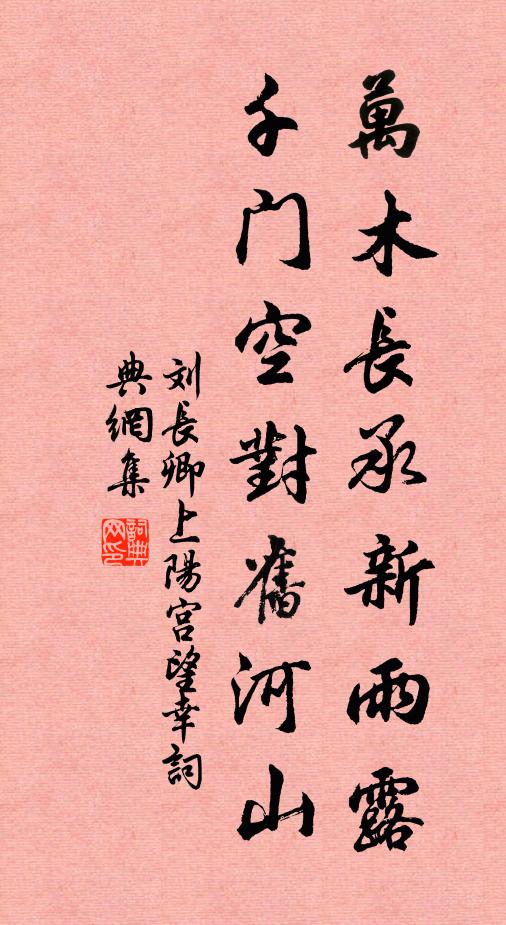 萬木長承新雨露
千門空對舊河山
刘長卿上陽宮望幸詞
典網集
詞典
网印